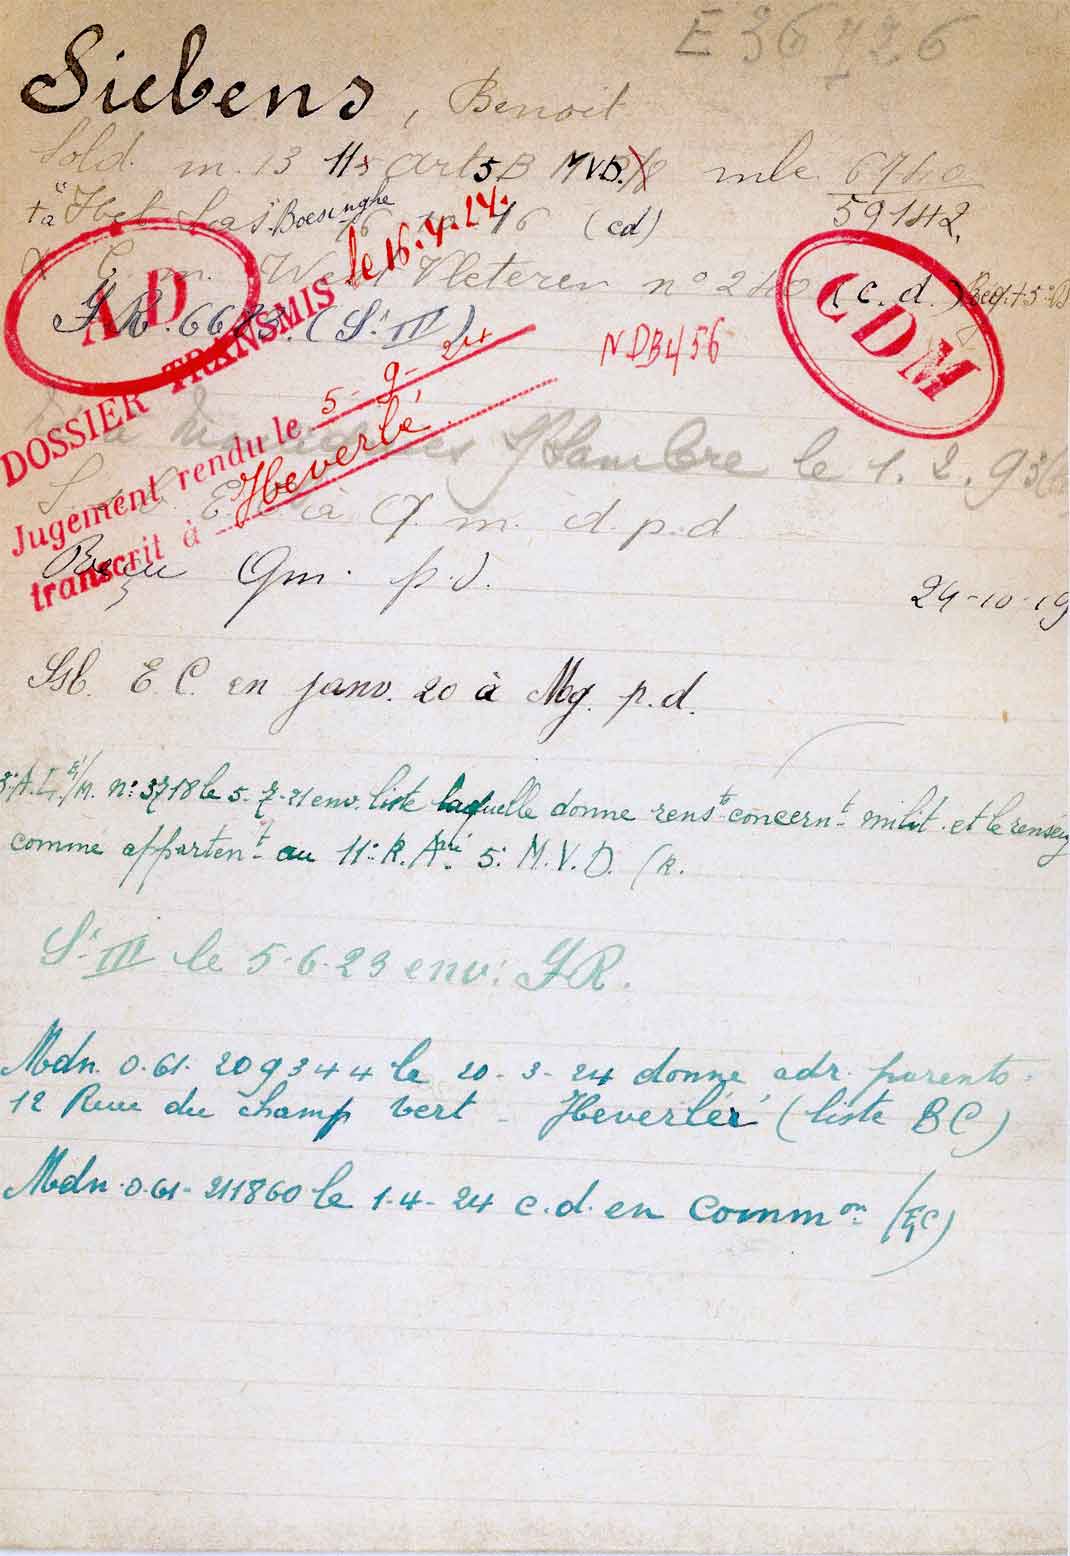 E 36726
Siebens, Benoit
Sold. m. 13 11e art 5 B MVD. mle 6740
59142.
+ à "Het Sas" Boesinghe 16 (cd)
le 16.4.24.
E. m. West Vleteren n° 240 (c.d.)
AD
CDM
J.R. 6673. (St III)
NDB456
DOSSIER TRANSMIS
Jugement rendu le 5-9-24
transcrit à Heverlé
S/Sambre le 1.2.93
à G. m. d. p. d
Gm. p. d.
24-10-19
E. C. en janv. 20 à Mg. p. d.
A.G. n° 3718 le 5-7-21 env. liste laquelle donne renst concernt milit. et le renseig
comme appartent au 11e R. Arie 5e M.V.D. (R.
St III le 5-6-23 env. JR.
Mdn. 0.61. 209344 le 20-3-24 donne adr. parents:
12 Rue du champ vert - Heverlé (liste BC)
Mdn 0.61-211860 le 1-4-24 c.d. en Common (EC)